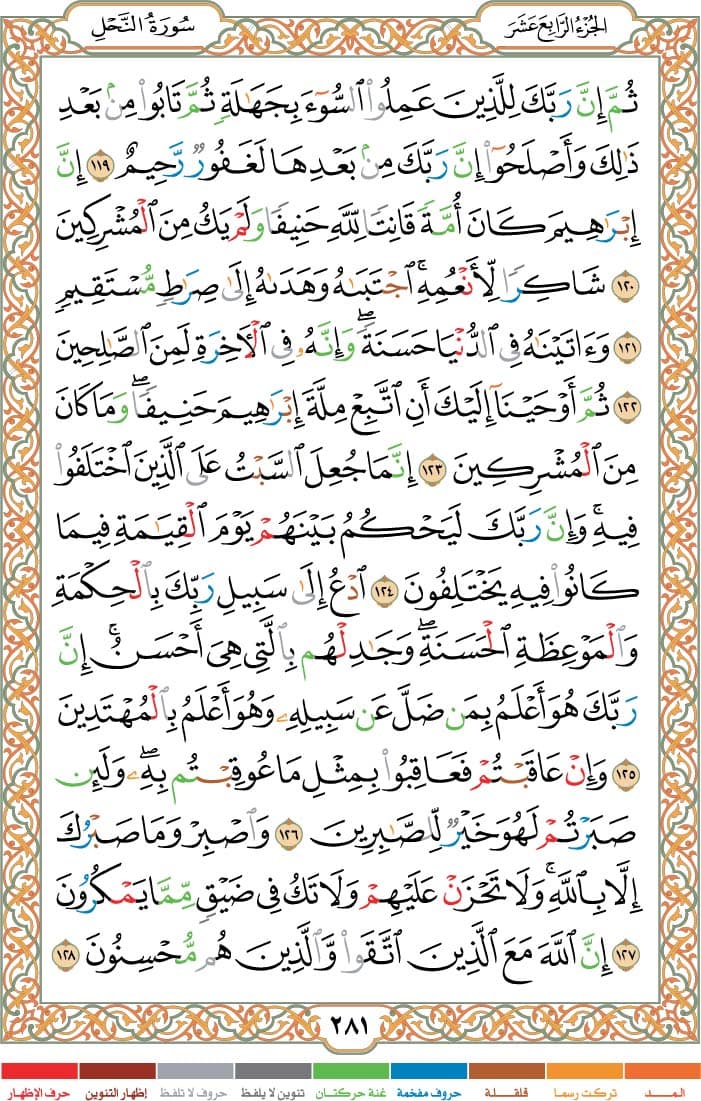 الجزء الرابع عشر
سورة النحل
ثُمَّ إِنَّ رَبَّكَ لِلَّذِينَ عَمِلُوا۟ ٱلسُّوٓءَ بِجَهَٰلَةٍ ثُمَّ تَابُوا۟ مِنۢ بَعْدِ
ذَٰلِكَ وَأَصْلَحُوٓا۟ إِنَّ رَبَّكَ مِنۢ بَعْدِهَا لَغَفُورٌ رَّحِيمٌ ١١٩ إِنَّ
إِبْرَٰهِيمَ كَانَ أُمَّةً قَانِتًا لِّلَّهِ حَنِيفًا وَلَمْ يَكُ مِنَ ٱلْمُشْرِكِينَ
١٢٠ شَاكِرًا لِّأَنْعُمِهِ ۚ ٱجْتَبَىٰهُ وَهَدَىٰهُ إِلَىٰ صِرَٰطٍ مُّسْتَقِيمٍ
١٢١ وَءَاتَيْنَٰهُ فِى ٱلدُّنْيَا حَسَنَةً ۖ وَإِنَّهُۥ فِى ٱلْءَاخِرَةِ لَمِنَ ٱلصَّٰلِحِينَ
١٢٢ ثُمَّ أَوْحَيْنَآ إِلَيْكَ أَنِ ٱتَّبِعْ مِلَّةَ إِبْرَٰهِيمَ حَنِيفًا ۖ وَمَا كَانَ
مِنَ ٱلْمُشْرِكِينَ ١٢٣ إِنَّمَا جُعِلَ ٱلسَّبْتُ عَلَى ٱلَّذِينَ ٱخْتَلَفُوا۟
فِيهِ ۚ وَإِنَّ رَبَّكَ لَيَحْكُمُ بَيْنَهُمْ يَوْمَ ٱلْقِيَٰمَةِ فِيمَا
كَانُوا۟ فِيهِ يَخْتَلِفُونَ ١٢٤ ٱدْعُ إِلَىٰ سَبِيلِ رَبِّكَ بِٱلْحِكْمَةِ
وَٱلْمَوْعِظَةِ ٱلْحَسَنَةِ ۖ وَجَٰدِلْهُم بِٱلَّتِى هِىَ أَحْسَنُ ۚ إِنَّ
رَبَّكَ هُوَ أَعْلَمُ بِمَن ضَلَّ عَن سَبِيلِهِۦ وَهُوَ أَعْلَمُ بِٱلْمُهْتَدِينَ
١٢٥ وَإِنْ عَاقَبْتُمْ فَعَاقِبُوا۟ بِمِثْلِ مَا عُوقِبْتُم بِهِۦ ۖ وَلَئِن
صَبَرْتُمْ لَهُوَ خَيْرٌ لِّلصَّٰبِرِينَ ١٢٦ وَٱصْبِرْ وَمَا صَبْرُكَ
إِلَّا بِٱللَّهِ ۚ وَلَا تَحْزَنْ عَلَيْهِمْ وَلَا تَكُ فِى ضَيْقٍ مِّمَّا يَمْكُرُونَ
١٢٧ إِنَّ ٱللَّهَ مَعَ ٱلَّذِينَ ٱتَّقَوا۟ وَّٱلَّذِينَ هُم مُّحْسِنُونَ ١٢٨
٢٨١
المــد تركت رسما قلقـلة حروف مفخمة غنة حركتان تنوين لا يلفظ حروف لا تلفظ إظهار التنوين حرف الإظهار